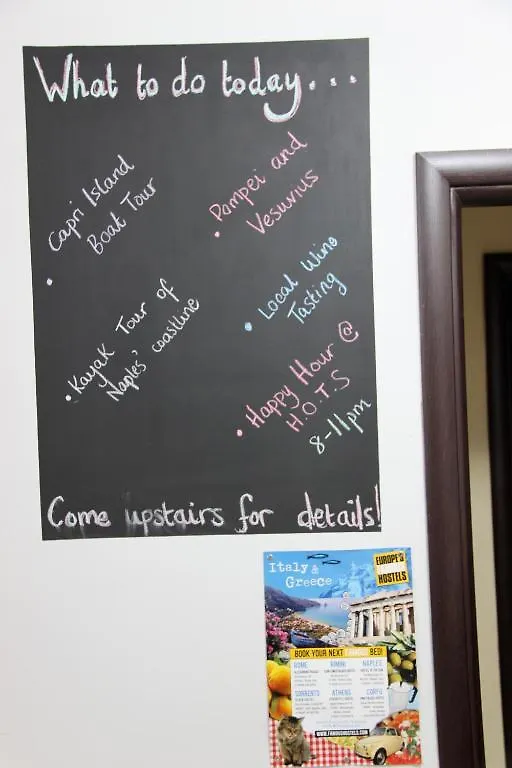 What to do today...
• Capri Island
Boat Tour
• Pompei and
Vesuvius
• Kayak Tour of
Naples' coastline
• Local Wine
Tasting
• Happy Hour @
H.O.T.S
8-11pm
Come upstairs for details!
Italy &
Greece
EUROPE'S
HOSTELS
BOOK YOUR NEXT BED!
ROME
RIMINI
NAPLES
SORRENTO
ATHENS
CORFU
WWW.FAMOUSHOSTELS.COM